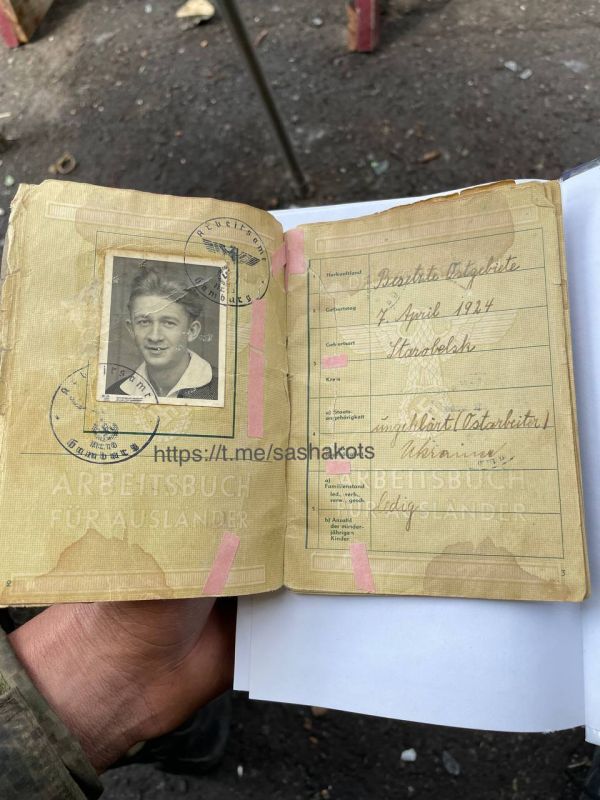 Arbeitsamt
Hamburg
Arbeitsamt
Hamburg
https://t.me/sashakots
ARBEITSBUCH
FÜR AUSLÄNDER
2
Herkunftland Besetzte Ostgebiete
Geburtstag 7. April 1924
Geburtsort Starobelsk
3
Kreis
a) Staats-
angehörigkeit ungeklärt (Ostarbeiter)
4
Ukraine
ARBEITSBUCH
FÜR AUSLÄNDER
a)
Familienstand
led., verh.,
verw., gesch. ledig
5
b) Anzahl
der minder-
jährigen
Kinder.
3